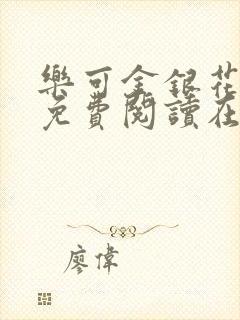 樂可金銀花
免費閱讀在
廖偉